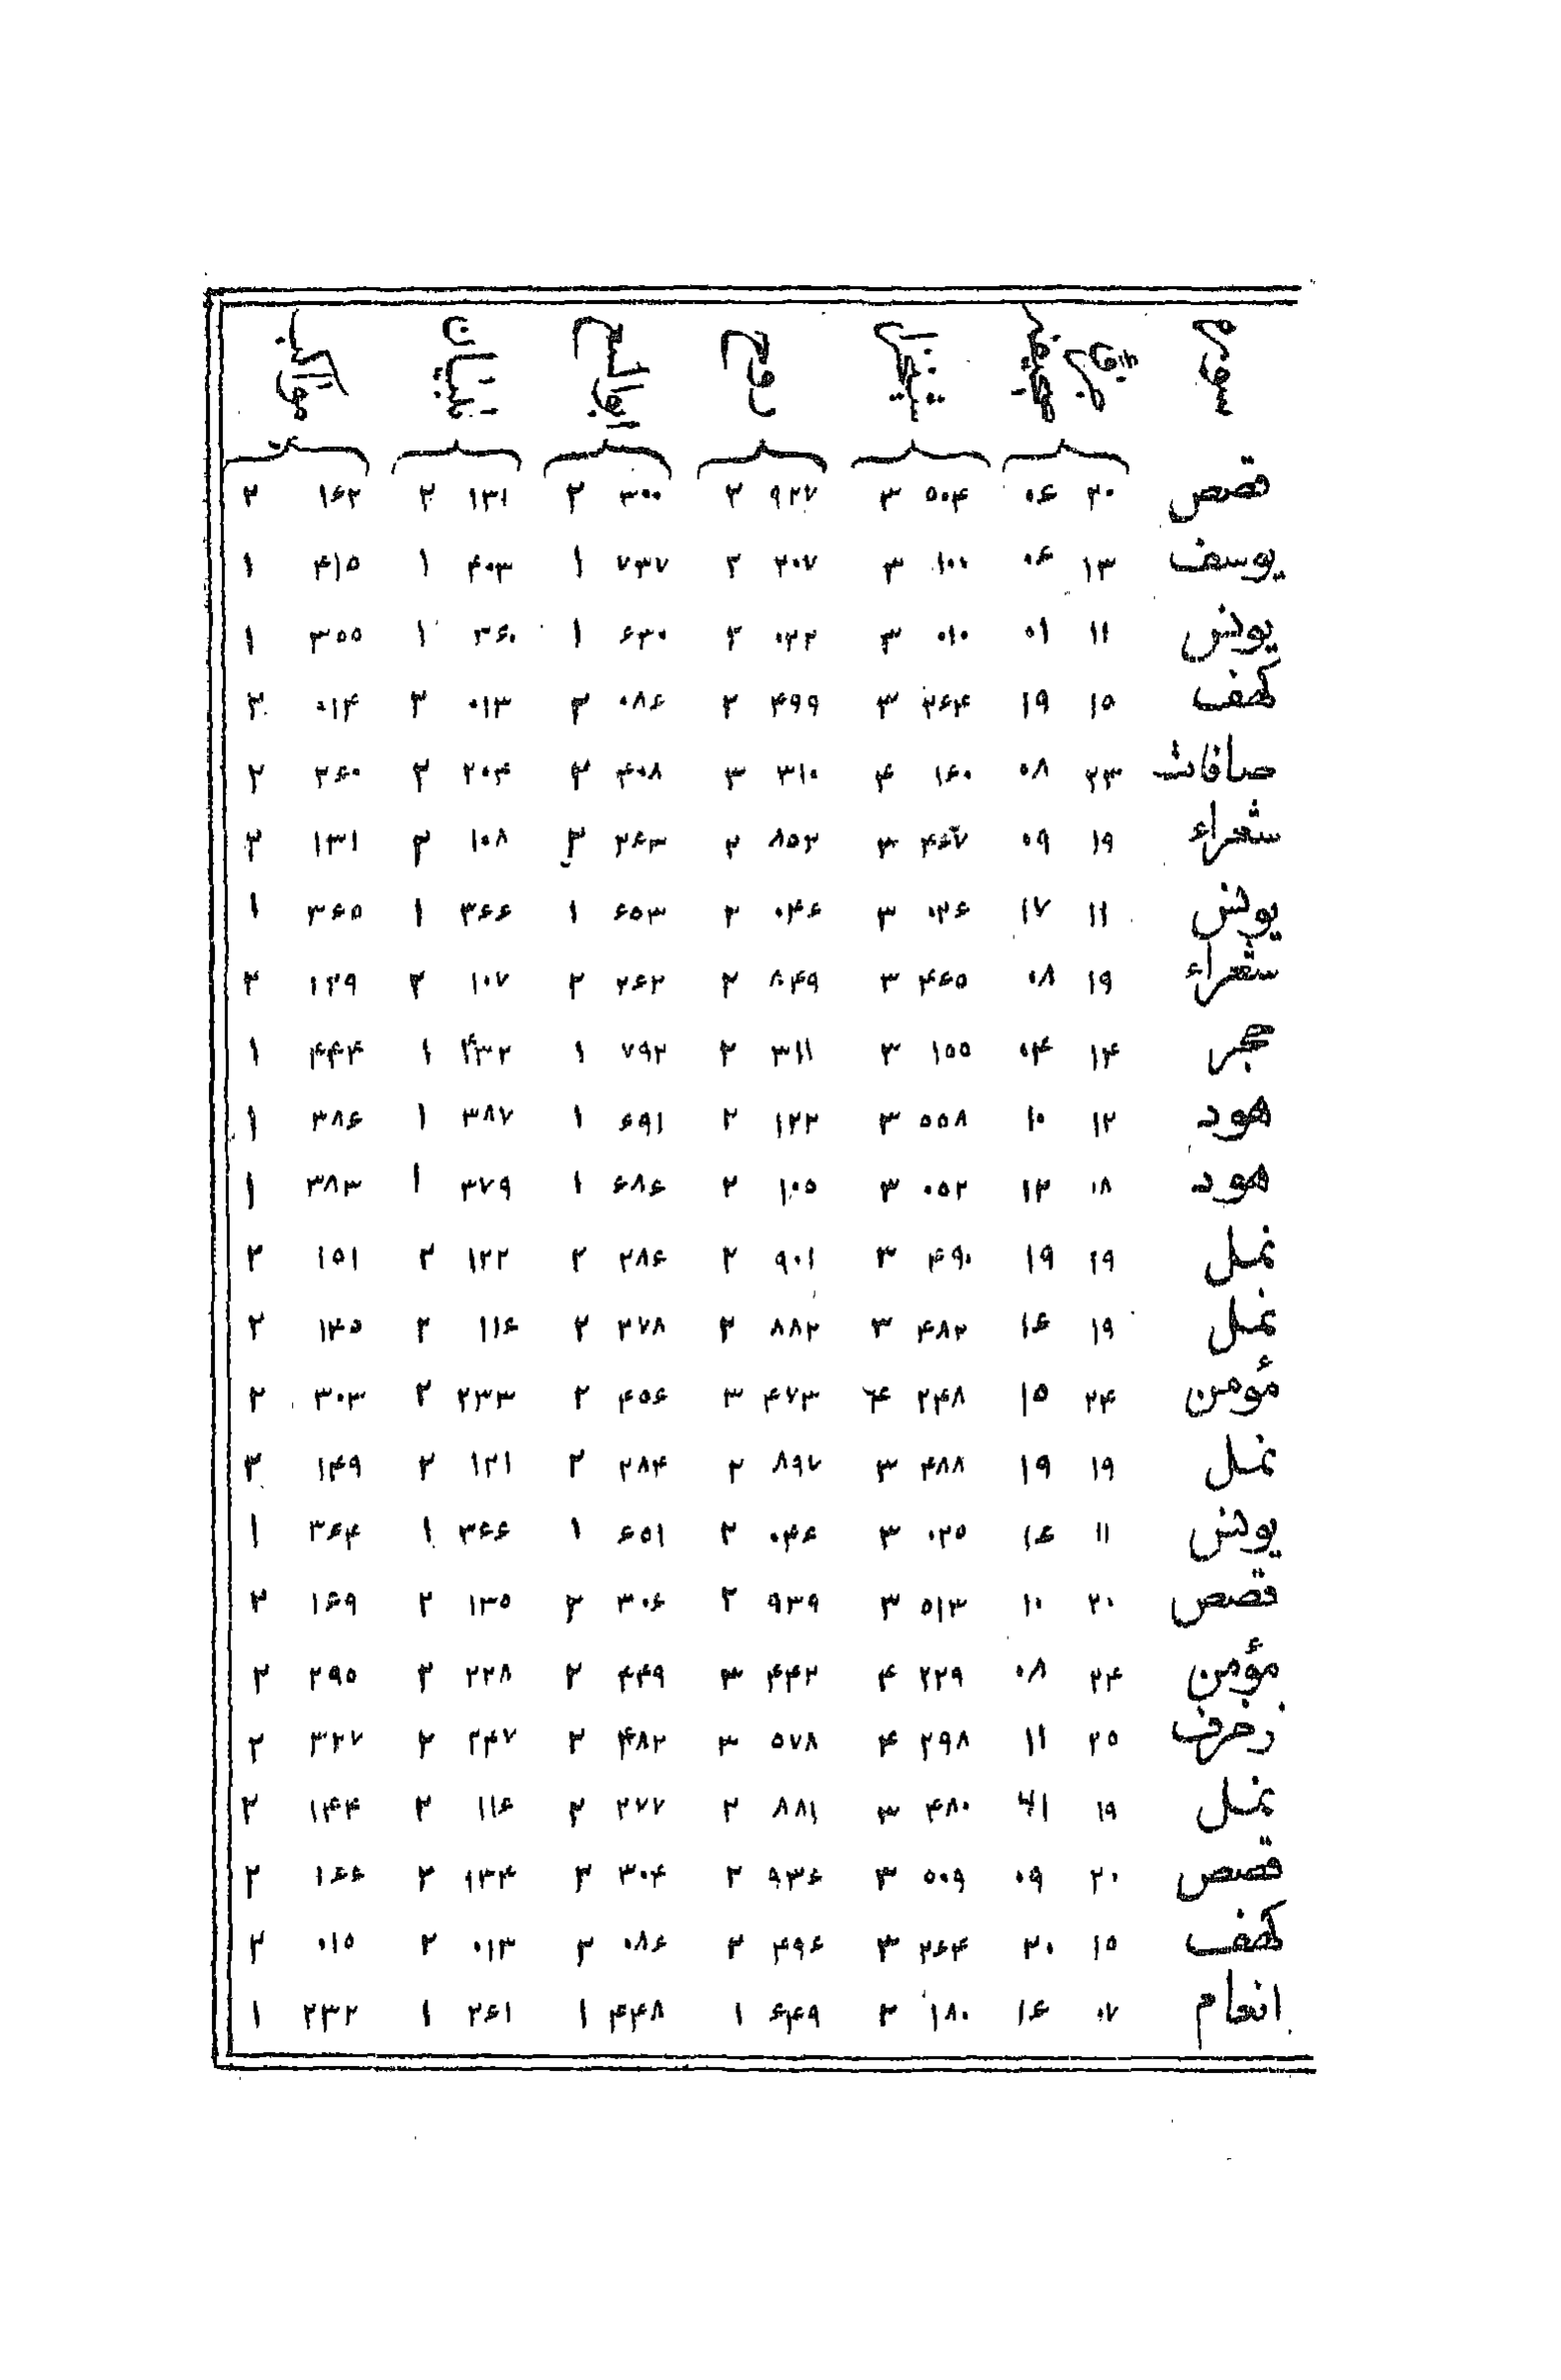 قصص ۲۰ ۰۶ ۵۰۴ ۳ ۹۲۷ ۲ ۳۰۰ ۲ ۱۳۱ ۲ ۱۶۲ ۲
یوسف ۱۳ ۰۶ ۱۰۰ ۳ ۲۰۷ ۲ ۷۳۷ ۱ ۴۰۳ ۱ ۴۱۵ ۱
یونس ۱۱ ۰۱ ۰۱۰ ۳ ۰۲۲ ۲ ۶۳۰ ۱ ۳۶۰ ۱ ۳۵۵ ۱
کهف ۱۵ ۱۹ ۲۶۴ ۳ ۴۹۹ ۲ ۰۸۶ ۲ ۰۱۳ ۲ ۰۱۴ ۲
صافات ۲۳ ۰۸ ۱۶۰ ۴ ۳۱۰ ۳ ۴۰۸ ۲ ۲۰۴ ۲ ۲۶۰ ۲
شعراء ۱۹ ۰۹ ۴۶۷ ۳ ۸۵۲ ۲ ۲۶۳ ۲ ۱۰۸ ۲ ۱۳۱ ۲
یونس ۱۱ ۱۷ ۰۲۶ ۳ ۰۴۶ ۲ ۶۵۳ ۱ ۳۶۶ ۱ ۳۶۵ ۱
شعراء ۱۹ ۰۸ ۴۶۵ ۳ ۸۴۹ ۲ ۲۶۲ ۲ ۱۰۷ ۲ ۱۲۹ ۲
حجر ۱۴ ۰۴ ۱۵۵ ۳ ۳۱۱ ۲ ۷۹۲ ۱ ۴۳۲ ۱ ۴۴۴ ۱
هود ۱۲ ۱۰ ۵۵۸ ۳ ۱۲۲ ۲ ۶۹۱ ۱ ۳۸۷ ۱ ۳۸۶ ۱
هود ۰۸ ۱۲ ۰۵۲ ۳ ۱۰۵ ۲ ۶۸۶ ۱ ۳۷۹ ۱ ۳۸۳ ۱
نمل ۱۹ ۱۹ ۴۹۰ ۳ ۹۰۱ ۲ ۲۸۶ ۲ ۱۲۲ ۲ ۱۵۱ ۲
نمل ۱۹ ۱۶ ۴۸۲ ۳ ۸۸۲ ۲ ۲۷۸ ۲ ۱۱۶ ۲ ۱۴۵ ۲
مؤمن ۲۴ ۱۵ ۲۴۸ ۴ ۴۷۳ ۳ ۴۵۶ ۲ ۲۳۳ ۲ ۳۰۳ ۲
نمل ۱۹ ۱۹ ۴۸۸ ۳ ۸۹۷ ۲ ۲۸۴ ۲ ۱۲۱ ۲ ۱۴۹ ۲
یونس ۱۱ ۱۶ ۰۲۵ ۳ ۰۴۶ ۲ ۶۵۱ ۱ ۳۶۶ ۱ ۳۶۴ ۱
قصص ۲۰ ۱۰ ۵۱۳ ۳ ۹۳۹ ۲ ۳۰۶ ۲ ۱۳۵ ۲ ۱۶۹ ۲
مؤمن ۲۴ ۰۸ ۲۲۹ ۴ ۴۴۲ ۳ ۴۴۹ ۲ ۲۲۸ ۲ ۲۹۵ ۲
زخرف ۲۵ ۱۱ ۲۹۸ ۴ ۵۷۸ ۳ ۴۸۲ ۲ ۲۴۷ ۲ ۳۲۷ ۲
نمل ۱۹ ۴۸۰ ۳ ۸۸۱ ۲ ۲۷۷ ۲ ۱۱۶ ۲ ۱۴۴ ۲
قصص ۲۰ ۰۹ ۵۰۹ ۳ ۹۳۶ ۲ ۳۰۴ ۲ ۱۳۴ ۲ ۱۶۶ ۲
کهف ۱۵ ۲۰ ۲۶۴ ۳ ۴۹۶ ۲ ۰۸۶ ۲ ۰۱۳ ۲ ۰۱۵ ۲
انعام ۰۷ ۱۶ ۱۸۰ ۲ ۶۴۹ ۱ ۴۴۸ ۱ ۲۶۱ ۱ ۲۳۲ ۱